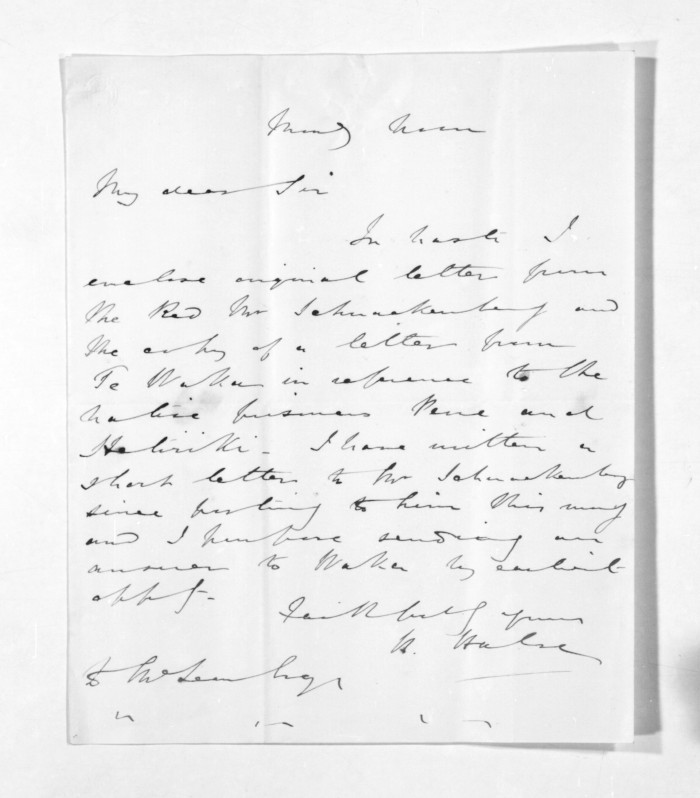 Mondy Noon
My dear Sir
In haste I
enclose original letter from
the Revd Mr Schnackenberg and
the copy of a letter from
Te Waka in reference to the
native prisoners Pene and
I have written a
short letter to Mr Schnackenberg
since posting to him this morng
and I purpose sending an
answer to Waka by earliest
oppy.
Faithfully yours
H. Halse
D McLean Esqr
" " " "